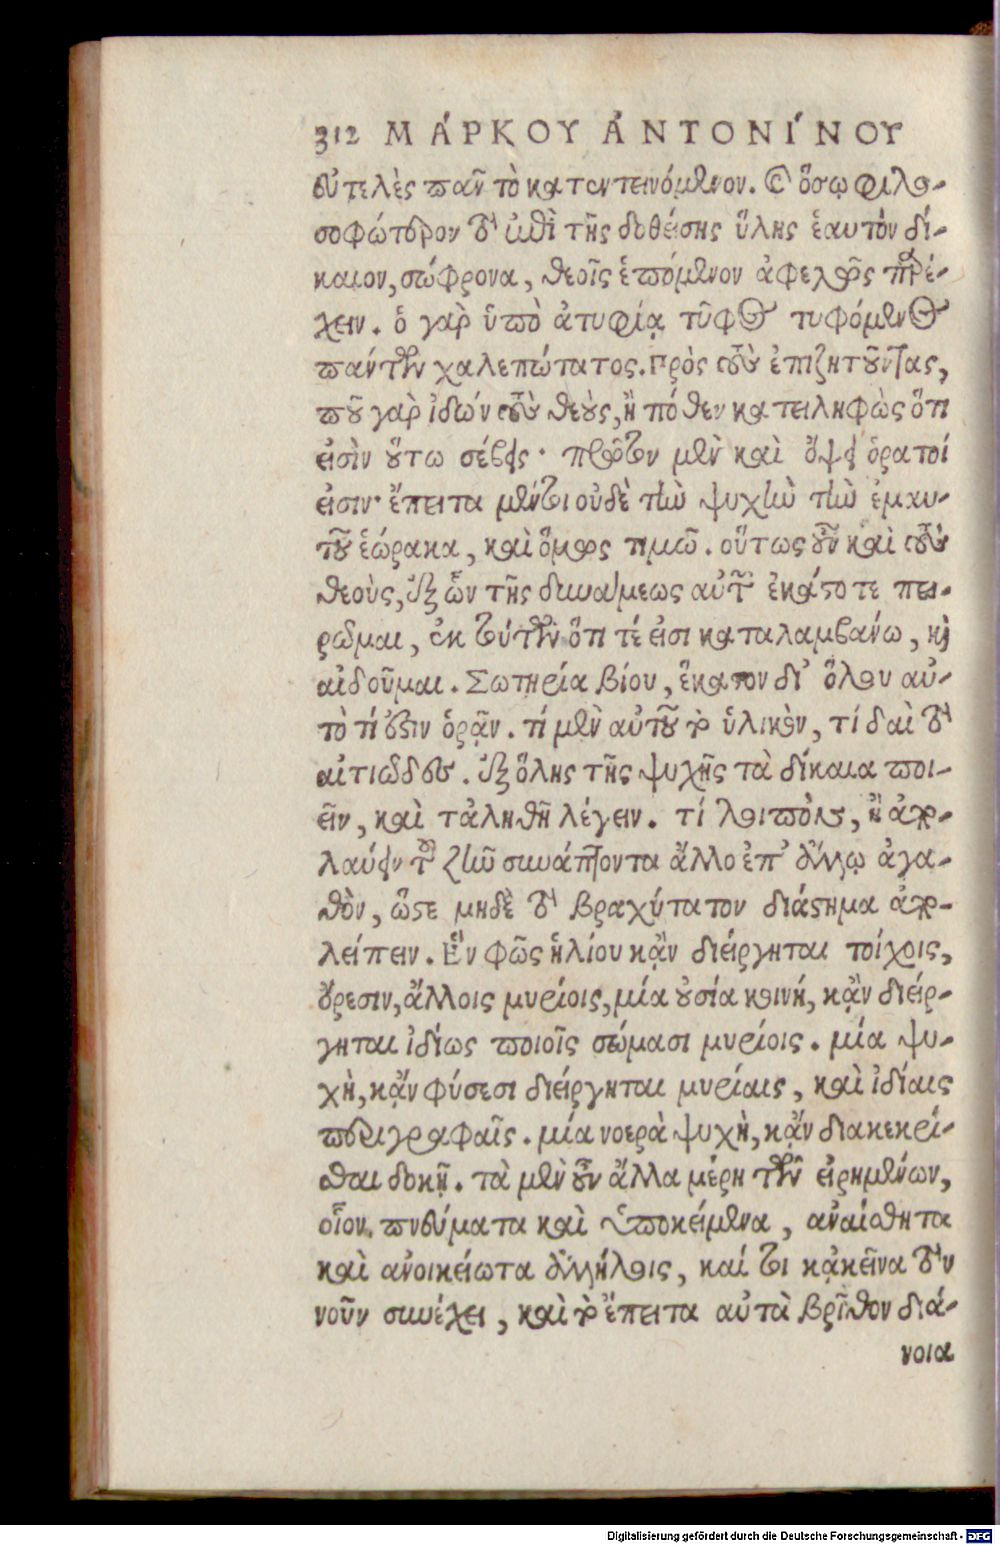 312 ΜΆΡΚΟΥ ἈΝΤΟΝΊΝΟΥ
εὐτελὲς πᾶν τὸ κατεντεινόμενον. καὶ ὅσῳ φιλο-
σοφώτερον τὸ ἐπὶ τῆς δοθείσης ὕλης ἑαυτὸν δί-
καιον, σώφρονα, θεοῖς ἑπόμενον ἀφελῶς παρέ-
χειν. ὁ γὰρ ὑπὸ ἀτυφίᾳ τῦφος τυφόμενος
πάντων χαλεπώτατος. Πρὸς τοὺς ἐπιζητοῦντας,
ποῦ γὰρ ἰδὼν τοὺς θεοὺς, ἢ πόθεν κατειληφὼς ὅτι
εἰσὶν οὕτω σέβεις· πρῶτον μὲν καὶ ὄψει ὁρατοί
εἰσιν· ἔπειτα μέντοι οὐδὲ τὴν ψυχὴν τὴν ἐμαυ-
τοῦ ἑώρακα, καὶ ὅμως τιμῶ. οὕτως οὖν καὶ τοὺς
θεοὺς, ἐξ ὧν τῆς δυνάμεως αὐτῶν ἑκάστοτε πει-
ρῶμαι, ἐκ τούτων ὅτι τέ εἰσι καταλαμβάνω, καὶ
αἰδοῦμαι. Σωτηρία βίου, ἕκαστον δι' ὅλου αὐ-
τὸ τί ἐστιν ὁρᾷν. τί μὲν αὐτοῦ τὸ ὑλικὸν, τί δαὶ τὸ
αἰτιῶδες. ἐξ ὅλης τῆς ψυχῆς τὰ δίκαια ποι-
εῖν, καὶ τἀληθῆ λέγειν. τί λοιπὸν, ἢ ἀπο-
λαύειν τοῦ ζῆν συνάπτοντα ἄλλο ἐπ' ἄλλῳ ἀγα-
θὸν, ὥστε μηδὲ τὸ βραχύτατον διάστημα ἀπο-
λείπειν. Ἓν φῶς ἡλίου κἂν διείργηται τοίχοις,
ὄρεσιν, ἄλλοις μυρίοις, μία οὐσία κοινή, κἂν διείρ-
γηται ἰδίως ποιοῖς σώμασι μυρίοις. μία ψυ-
χὴ, κἂν φύσεσι διείργηται μυρίαις, καὶ ἰδίαις
περιγραφαῖς. μία νοερὰ ψυχὴ, κἂν διακεκρί-
σθαι δοκῇ. τὰ μὲν οὖν ἄλλα μέρη τῶν εἰρημένων,
οἷον πνεύματα καὶ ὑποκείμενα, ἀναίσθητα
καὶ ἀνοικείωτα ἀλλήλοις, καί τοι κἀκεῖνα τὸν
νοῦν συνέχει, καὶ τὸ ἔπειτα αὐτὰ βρῖθον διά-
νοια
Digitalisierung gefördert durch die Deutsche Forschungsgemeinschaft - DFG